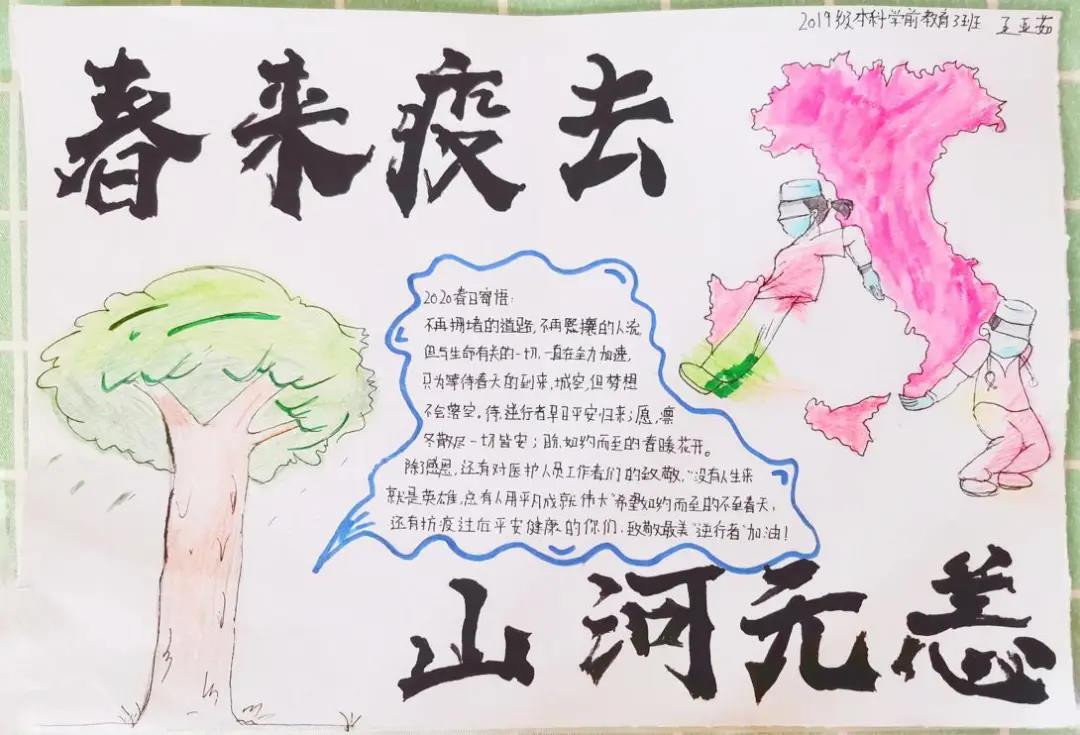 2019级本科学前教育3班 王亚茹
春来疫去
2020春日寄语:
不再拥堵的道路,不再熙攘的人流,
但与生命有关的一切,一直在全力加速,
只为等待春天的到来,城空,但梦想
不会落空。待,逆行者早日平安归来;愿,凛
冬散尽一切皆安;盼,如约而至的春暖花开。
除了感恩,还有对医护人员工作者们的致敬,“没有人生来
就是英雄,总有人用平凡成就伟大”希望如约而至的不至春天,
还有抗疫过后平安健康的你们,致敬最美“逆行者”加油!
山河无恙